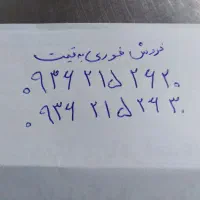 فروش فوری به قیمت
۰۹۳۶ ۲۱۵ ۲۶۲۰
۰۹۳۶ ۲۱۵ ۲۶۳۰